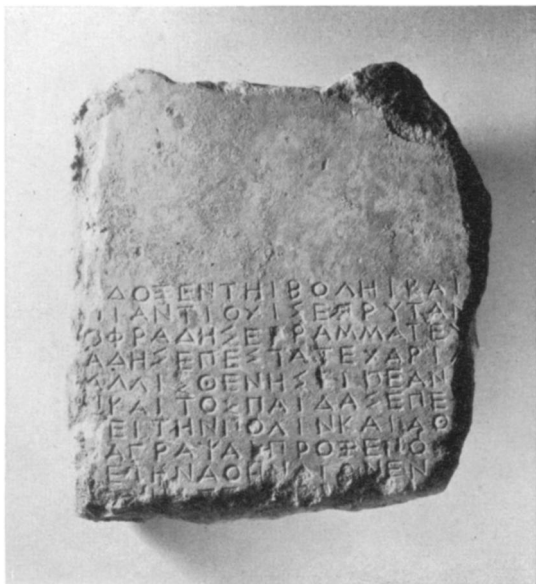 ΔΟΞΕΝΤΗΙΒΟΛΗΙΚΑΙ
ΙΑΝΤΙΟΧΙΣΕΠΡΥΤΑΝ
ΟΦΡΑΔΗΣΕΓΡΑΜΜΑΤΕΥ
ΑΔΗΣΕΠΕΣΤΑΤΕΧΑΡΙ
ΑΛΛΙΣΘΕΝΗΣΕΙΠΕΑΝ
ΙΚΑΙΤΟΣΠΑΙΔΑΣΕΠΕ
ΕΙΤΗΝΠΟΛΙΝΚΑΙΑΘ
ΑΓΡΑΨΑΙΠΡΟΞΕΝΟ
ΕΤΗΝΑΘΗΝΑΙΩΝΕΝ